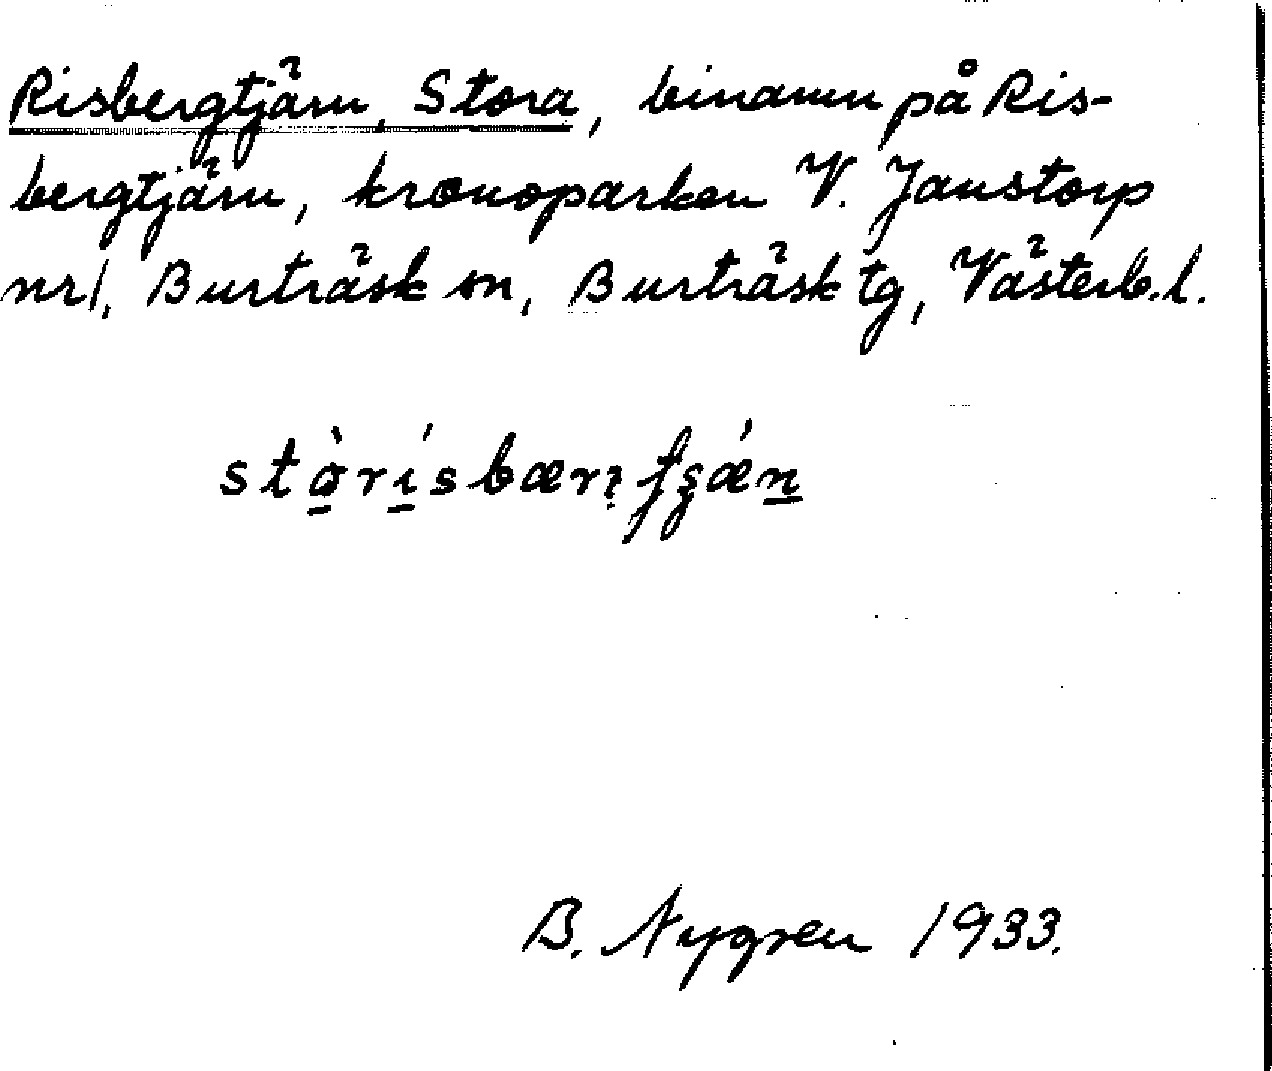 Risbergtjärn, Stora, binamn på Ris-
bergtjärn, kronoparken V. Janstorp
nr 1, Burträsk sn, Burträsk tg, Västerb. l.
B. Nygren 1933.